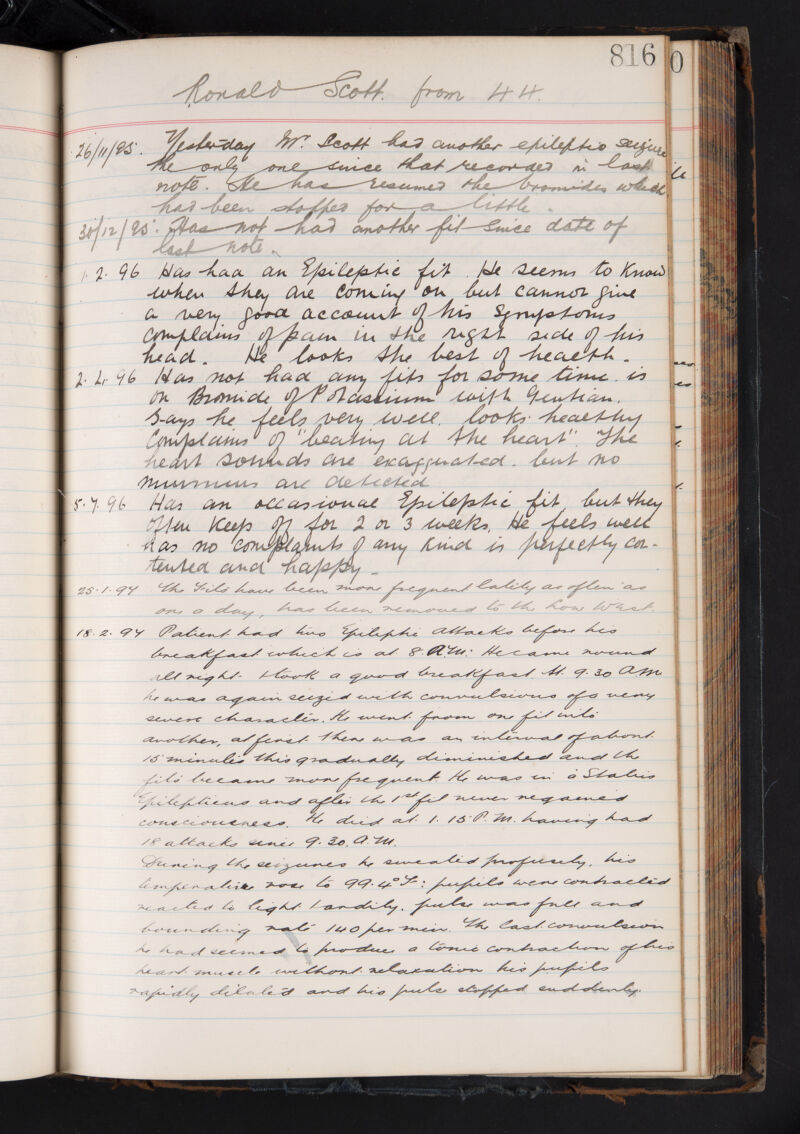 816
0
Ronald Scott. from 44.
26/11/95. Yesterday Mr Scott had another epileptic seizure
the only one since that recorded in last
note. He has resumed the bromides which
had been stopped for a little.
30/12/95. Has not had another fit since date of
last note.
1. 2. 96 Has had an Epileptic fit. He seems to know
when they are coming on but cannot give
a very good account of his symptoms
complains of pain in the right side of his
head. He looks the best of health.
2. 4. 96 Has not had any fits for some time. is
on Bromide of Potassium with Gentian.
Says he feels very well. looks healthy
Complains of "beating at the heart". The
heart sounds are exaggerated. but no
murmurs are detected
5. 7. 96 Has an occasional Epileptic fit but they
often keep off for 2 or 3 weeks. He feels well
has no complaints of any kind is perfectly con-
tented and happy.
25.1.97 The Fits have been more frequent lately as often as
one a day, has been removed to the Low West.
18.2.97 Patient had two Epileptic attacks before his
breakfast which is at 8 A.M: He came round
all right & took a good breakfast. At 9.30 AM
he was again seized with convulsions of a very
severe character. He went from one fit into
another, at first there was an interval of about
15 minutes this gradually diminished and the
fits became more frequent He was in a Status
Epilepticus and after the 1st fit never regained
consciousness. He died at 1.15 P.M. having had
18 attacks since 9.30. A.M.
During the seizures he sweated profusely, his
temperature rose to 99.4° F: pupils were contracted
reacted to light tardily. pulse was full and
bounding rate 140 per min. The last convulsion
he had seemed to produce a tonic contraction of his
heart muscle without relaxation his pupils
rapidly dilated and his pulse stopped suddenly.